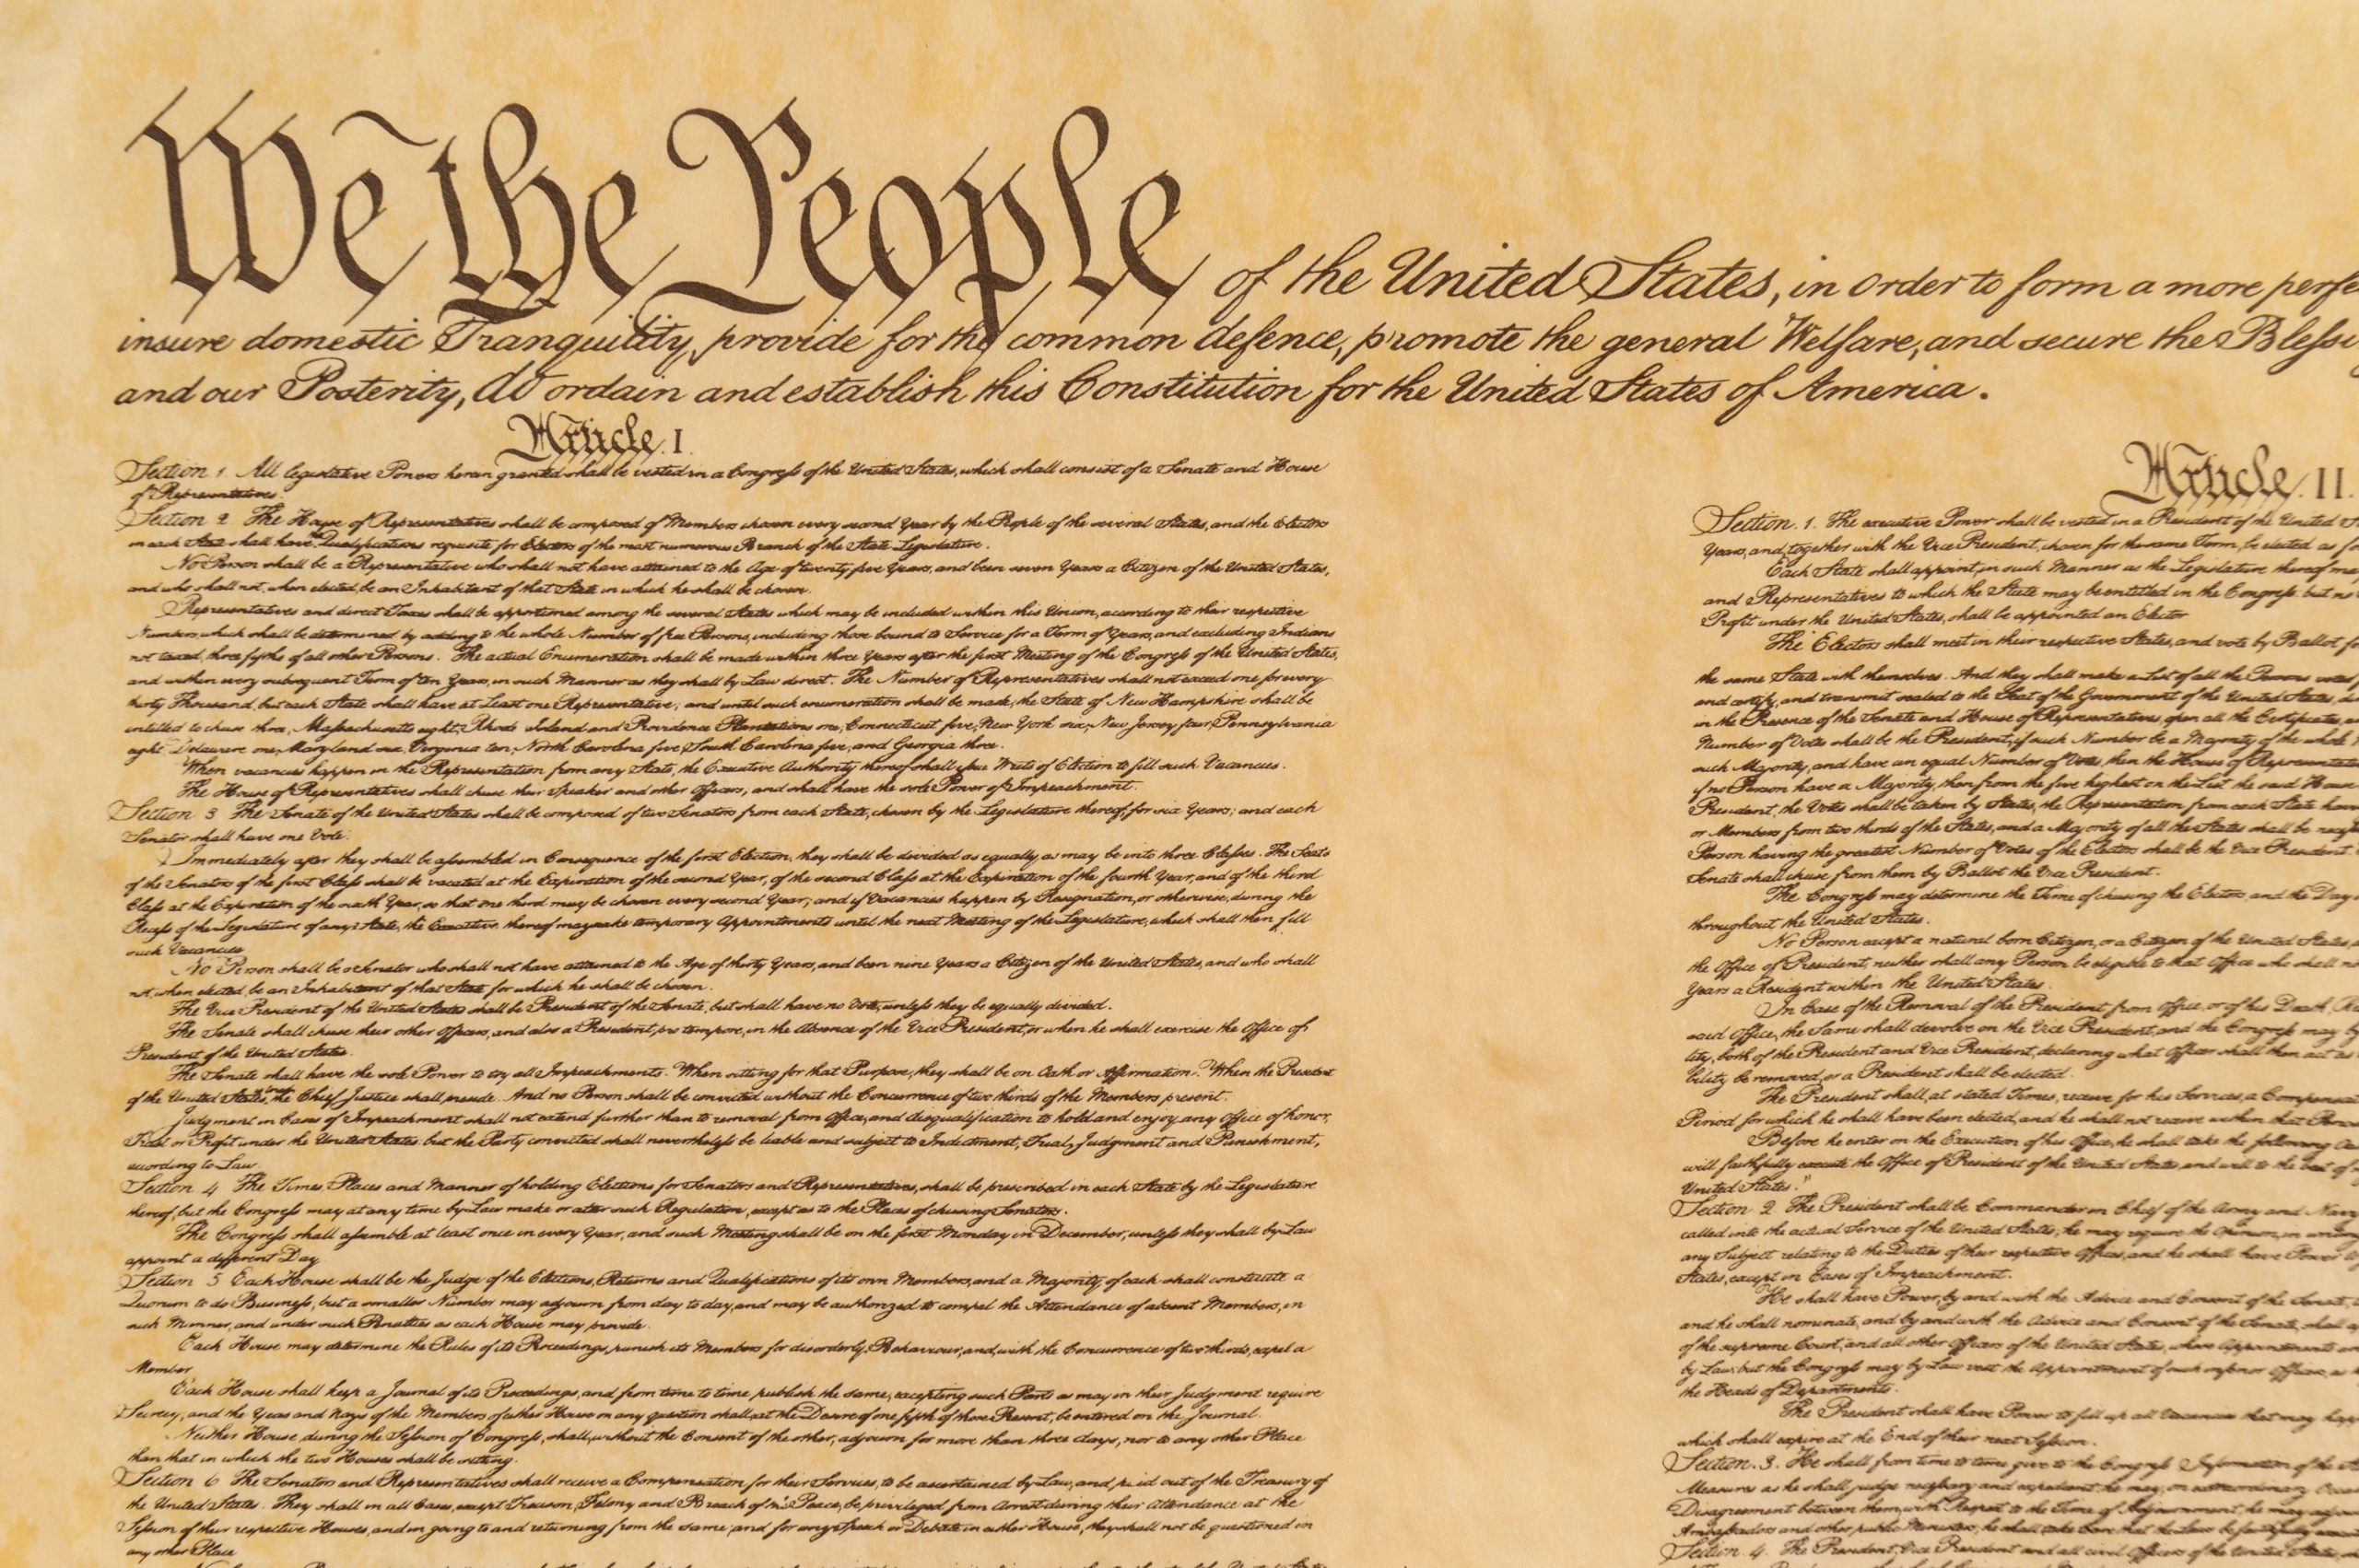 We the People of the United States, in Order to form a more perfe
insure domestic Tranquility, provide for the common defence, promote the general Welfare, and secure the Bleſsi
and our Posterity, do ordain and establish this Constitution for the United States of America.
Article. I.
Section 1. All legislative Powers herein granted shall be vested in a Congreſs of the United States, which shall consist of a Senate and House
of Representatives.
Section 2. The House of Representatives shall be composed of Members chosen every second Year by the People of the several States, and the Electors
in each State shall have the Qualifications requisite for Electors of the most numerous Branch of the State Legislature.
No Person shall be a Representative who shall not have attained to the Age of twenty five Years, and been seven Years a Citizen of the United States,
and who shall not, when elected, be an Inhabitant of that State in which he shall be chosen.
Representatives and direct Taxes shall be apportioned among the several States which may be included within this Union, according to their respective
Numbers, which shall be determined by adding to the whole Number of free Persons, including those bound to Service for a Term of Years, and excluding Indians
not taxed, three fifths of all other Persons. The actual Enumeration shall be made within three Years after the first Meeting of the Congreſs of the United States,
and within every subsequent Term of ten Years, in such Manner as they shall by Law direct. The Number of Representatives shall not exceed one for every
thirty Thousand, but each State shall have at Least one Representative; and until such enumeration shall be made, the State of New Hampshire shall be
entitled to chuse three, Maſsachusetts eight, Rhode Island and Providence Plantations one, Connecticut five, New York six, New Jersey four, Pennsylvania
eight, Delaware one, Maryland six, Virginia ten, North Carolina five, South Carolina five, and Georgia three.
When vacancies happen in the Representation from any State, the Executive Authority thereof shall iſsue Writs of Election to fill such Vacancies.
The House of Representatives shall chuse their Speaker and other Officers; and shall have the sole Power of Impeachment.
Section 3. The Senate of the United States shall be composed of two Senators from each State, chosen by the Legislature thereof, for six Years; and each
Senator shall have one Vote.
Immediately after they shall be aſsembled in Consequence of the first Election, they shall be divided as equally as may be into three Claſses. The Seats
of the Senators of the first Claſs shall be vacated at the Expiration of the second Year, of the second Claſs at the Expiration of the fourth Year, and of the third
Claſs at the Expiration of the sixth Year, so that one third may be chosen every second Year; and if Vacancies happen by Resignation, or otherwise, during the
Receſs of the Legislature of any State, the Executive thereof may make temporary Appointments until the next Meeting of the Legislature, which shall then fill
such Vacancies.
No Person shall be a Senator who shall not have attained to the Age of thirty Years, and been nine Years a Citizen of the United States, and who shall
not, when elected, be an Inhabitant of that State for which he shall be chosen.
The Vice President of the United States shall be President of the Senate, but shall have no Vote, unleſs they be equally divided.
The Senate shall chuse their other Officers, and also a President pro tempore, in the Absence of the Vice President, or when he shall exercise the Office of
President of the United States.
The Senate shall have the sole Power to try all Impeachments. When sitting for that Purpose, they shall be on Oath or Affirmation. When the President
of the United States is tried, the Chief Justice shall preside: And no Person shall be convicted without the Concurrence of two thirds of the Members present.
Judgment in Cases of Impeachment shall not extend further than to removal from Office, and disqualification to hold and enjoy any Office of honor,
Trust or Profit under the United States: but the Party convicted shall nevertheleſs be liable and subject to Indictment, Trial, Judgment and Punishment,
according to Law.
Section 4. The Times, Places and Manner of holding Elections for Senators and Representatives, shall be prescribed in each State by the Legislature
thereof; but the Congreſs may at any time by Law make or alter such Regulation, except as to the Places of chusing Senators.
The Congreſs shall aſsemble at least once in every Year, and such Meeting shall be on the first Monday in December, unleſs they shall by Law
appoint a different Day.
Section 5. Each House shall be the Judge of the Elections, Returns and Qualifications of its own Members, and a Majority of each shall constitute a
Quorum to do Busineſs; but a smaller Number may adjourn from day to day, and may be authorized to compel the Attendance of absent Members, in
such Manner, and under such Penalties as each House may provide.
Each House may determine the Rules of its Proceedings, punish its Members for disorderly Behaviour, and, with the Concurrence of two thirds, expel a
Member.
Each House shall keep a Journal of its Proceedings, and from time to time publish the same, excepting such Parts as may in their Judgment require
Secrecy; and the Yeas and Nays of the Members of either House on any question shall, at the Desire of one fifth of those Present, be entered on the Journal.
Neither House, during the Seſsion of Congreſs, shall, without the Consent of the other, adjourn for more than three days, nor to any other Place
than that in which the two Houses shall be sitting.
Section 6. The Senators and Representatives shall receive a Compensation for their Services, to be ascertained by Law, and paid out of the Treasury of
the United States. They shall in all Cases, except Treason, Felony and Breach of the Peace, be privileged from Arrest during their Attendance at the
Seſsion of their respective Houses, and in going to and returning from the same; and for any Speech or Debate in either House, they shall not be questioned in
any other Place.
Article. II.
Section. 1. The executive Power shall be vested in a President of the United
Years, and, together with the Vice President, chosen for the same Term, be elected as
Each State shall appoint, in such Manner as the Legislature thereof
and Representatives to which the State may be entitled in the Congreſs: but no
Profit under the United States, shall be appointed an Elector.
The Electors shall meet in their respective States, and vote by Ballot
the same State with themselves. And they shall make a List of all the Persons voted
and certify, and transmit sealed to the Seat of the Government of the United States,
in the Presence of the Senate and House of Representatives, open all the Certificates,
Number of Votes shall be the President, if such Number be a Majority of the whole
such Majority, and have an equal Number of Votes, then the House of Representatives
if no Person have a Majority, then from the five highest on the List the said House
President, the Votes shall be taken by States, the Representation from each State
or Members from two thirds of the States, and a Majority of all the States shall be
Person having the greatest Number of Votes of the Electors shall be the Vice President.
Senate shall chuse from them by Ballot the Vice President.
The Congreſs may determine the Time of chusing the Electors, and the Day
throughout the United States.
No Person except a natural born Citizen, or a Citizen of the United States,
the Office of President; neither shall any Person be eligible to that Office who shall
Years a Resident within the United States.
In Case of the Removal of the President from Office, or of his Death,
said Office, the Same shall devolve on the Vice President, and the Congreſs may by
lity, both of the President and Vice President, declaring what Officer shall then act as
bility be removed, or a President shall be elected.
The President shall, at stated Times, receive for his Services, a
Period for which he shall have been elected, and he shall not receive within that
Before he enter on the Execution of his Office, he shall take the following
will faithfully execute the Office of President of the United States, and will to the best of
United States."
Section 2. The President shall be Commander in Chief of the Army and Navy
called into the actual Service of the United States; he may require the Opinion, in
any Subject relating to the Duties of their respective Offices, and he shall have Power
States, except in Cases of Impeachment.
He shall have Power, by and with the Advice and Consent of the Senate,
and he shall nominate, and by and with the Advice and Consent of the Senate, shall
of the supreme Court, and all other Officers of the United States, whose Appointments
by Law: but the Congreſs may by Law vest the Appointment of such inferior Officers, as
the Heads of Departments.
The President shall have Power to fill up all Vacancies that may
which shall expire at the End of their next Seſsion.
Section. 3. He shall from time to time give to the Congreſs Information of the
Measures as he shall judge neceſsary and expedient; he may, on extraordinary
Disagreement between them, with Respect to the Time of Adjournment, he may
Ambaſsadors and other public Ministers; he shall take Care that the Laws be faithfully
Section. 4. The President, Vice President and all civil Officers of the United States,